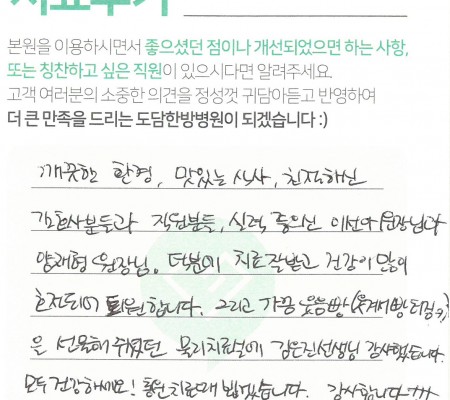 치료후기
본원을 이용하시면서 좋으셨던 점이나 개선되었으면 하는 사항,
또는 칭찬하고 싶은 직원이 있으시다면 알려주세요.
고객 여러분의 소중한 의견을 정성껏 귀담아듣고 반영하여
더 큰 만족을 드리는 도담한방병원이 되겠습니다 :)
깨끗한 환경, 맛있는 식사, 친절하신
간호사분들과 직원분들, 실력 좋으신 이선아 원장님과
양래형 원장님. 덕분에 치료 잘받고 건강이 많이
호전되어 퇴원합니다. 그리고 가끔 웃음빵
을 선물해 주셨던 물리치료실에 김은진선생님 감사했습니다.
모두 건강하세요! 통원치료때 뵙겠습니다. 감사합니다